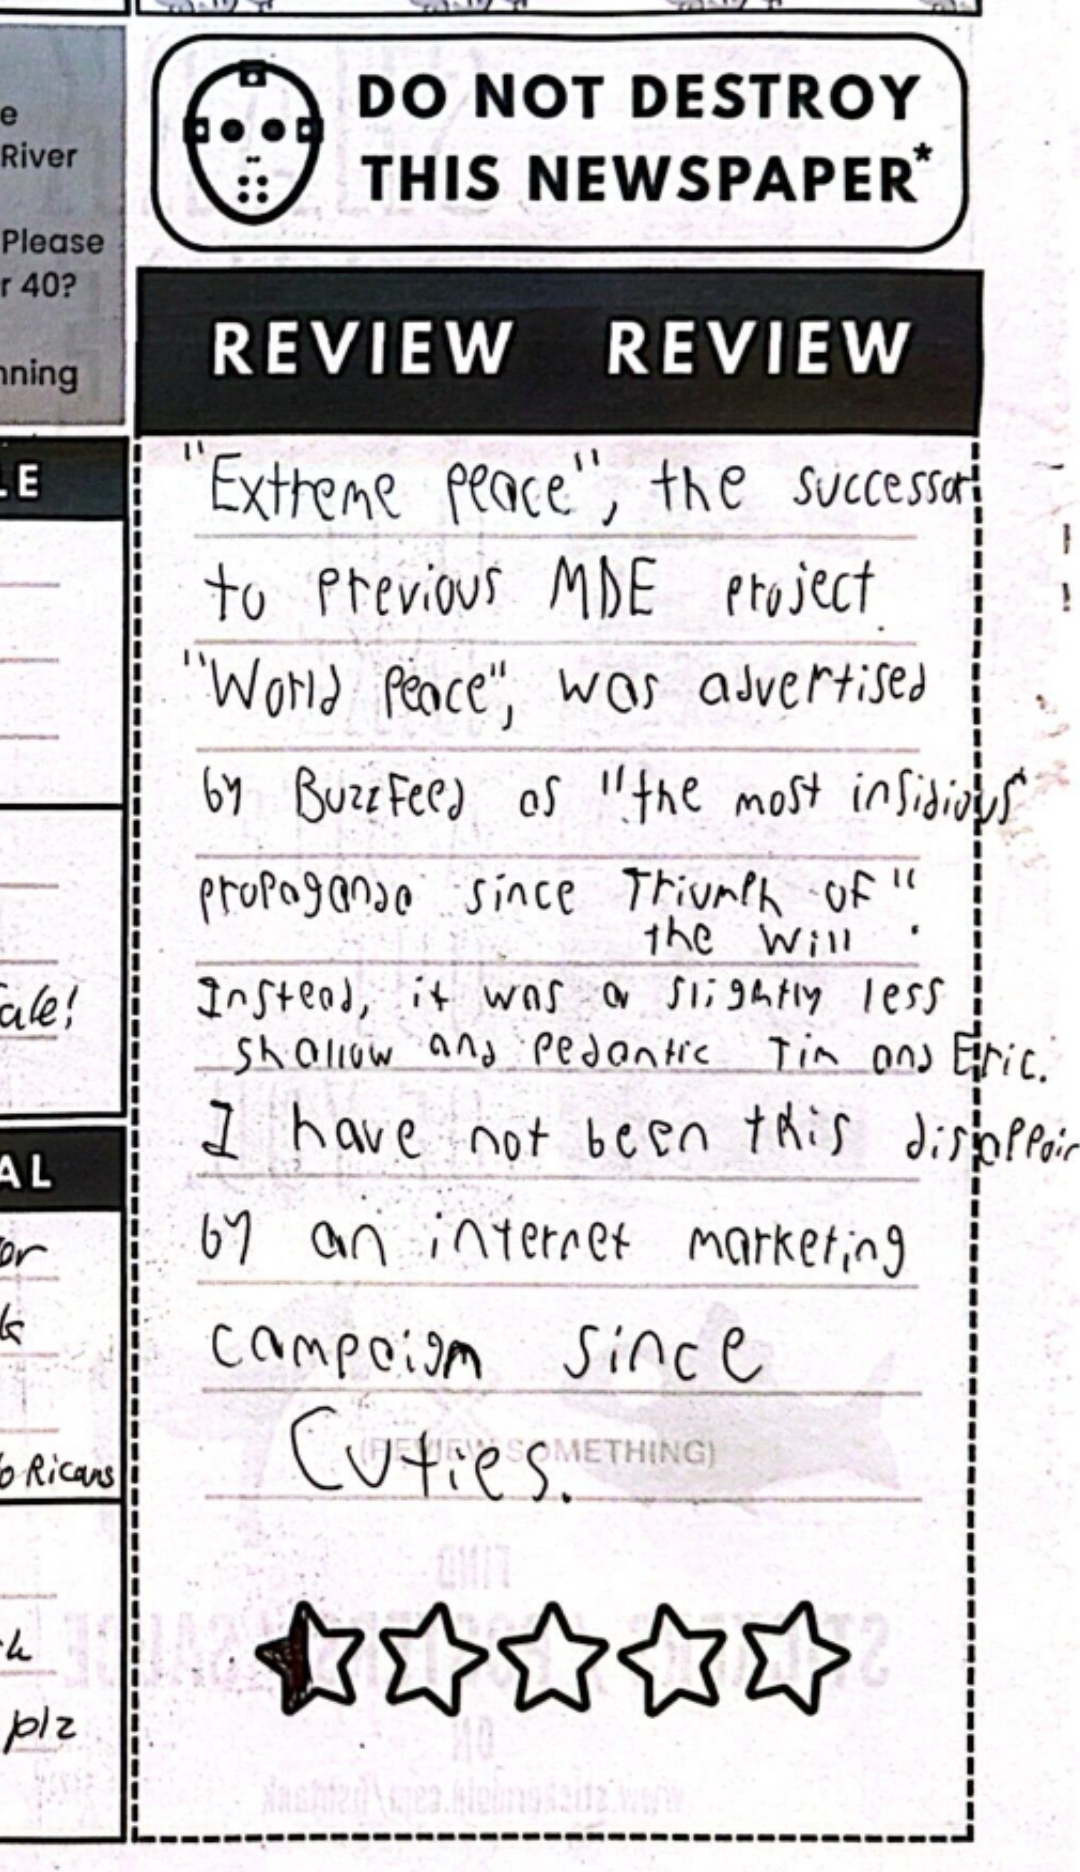 e
River
Please
r 40?
nning
LE
ale!
AL
or
k
o Ricans
plz
DO NOT DESTROY
THIS NEWSPAPER*
REVIEW REVIEW
"Extreme Peace", the successor
to previous MDE project
"World Peace", was advertised
by BuzzFeed as "the most insidious
propaganda since Triumph of"
the Will .
Instead, it was a slightly less
shallow and pedantic Tim and Eric.
I have not been this disappoin
by an internet marketing
campaign since
(REVIEW SOMETHING)
Cuties.
FIND
STICKERS / POSTERS / SAUCE
ON